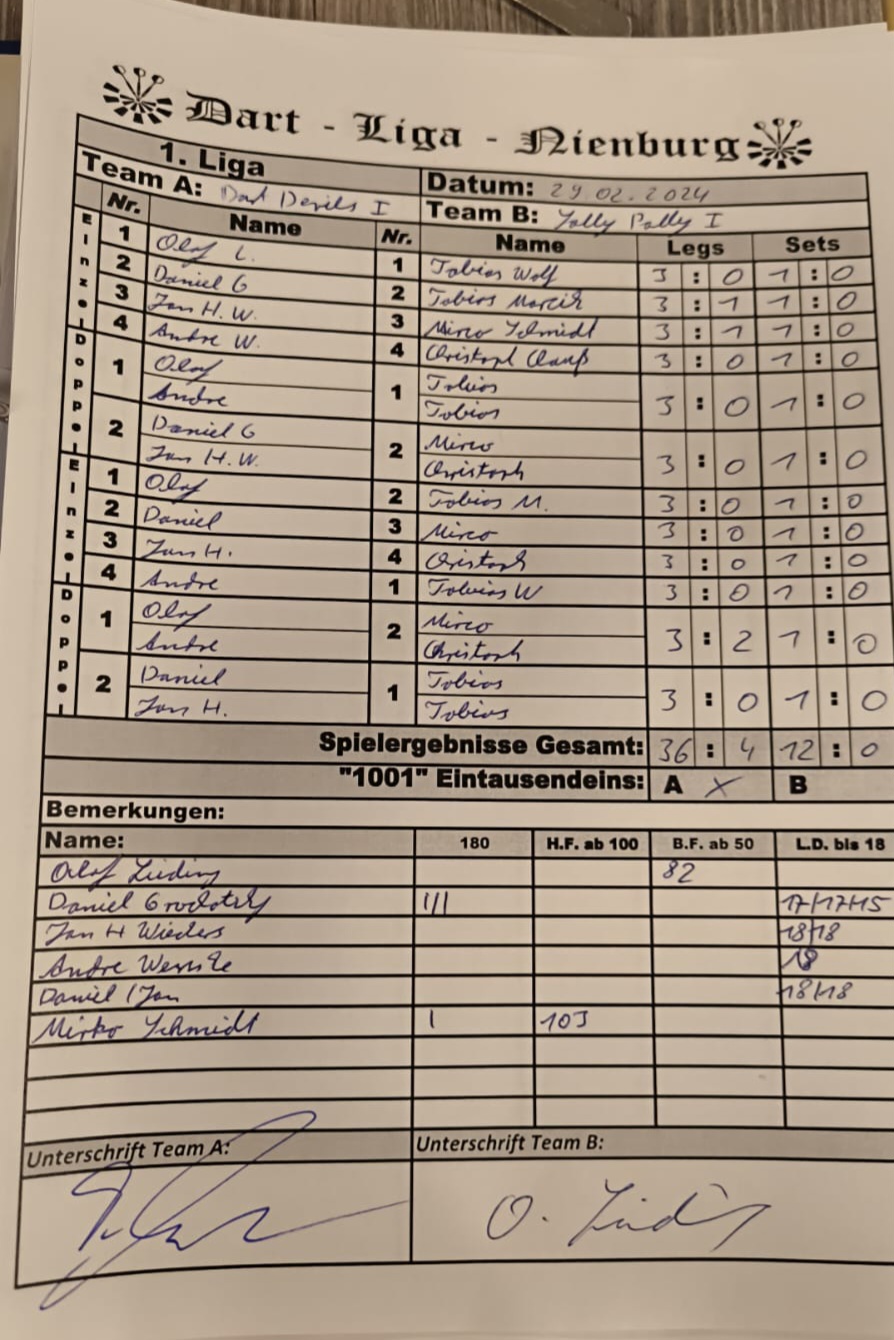 Dart - Liga - Nienburg
1. Liga
Datum: 29.02.2024
Team A: Dart Devils I
Team B: Jolly Pally I
Nr. Name Nr. Name Legs Sets
Einzel
1 Olaf L. 1 Tobias Wolf 3 : 0 1 : 0
2 Daniel G 2 Tobias 3 : 1 1 : 0
3 Jan H. W. 3 Mirco Schmidt 3 : 1 1 : 0
4 Andre W. 4 Christoph 3 : 0 1 : 0
Doppel
1 Olaf 1 Tobias 3 : 0 1 : 0
Andre Tobias
2 Daniel G 2 Mirco 3 : 0 1 : 0
Jan H. W. Christoph
Einzel
1 Olaf 2 Tobias M. 3 : 0 1 : 0
2 Daniel 3 Mirco 3 : 0 1 : 0
3 Jan H. 4 Christoph 3 : 0 1 : 0
4 Andre 1 Tobias W 3 : 0 1 : 0
Doppel
1 Olaf 2 Mirco 3 : 2 1 : 0
Andre Christoph
2 Daniel 1 Tobias 3 : 0 1 : 0
Jan H. Tobias
Spielergebnisse Gesamt: 36 : 4 12 : 0
"1001" Eintausendeins: A X B
Bemerkungen:
Name: 180 H.F. ab 100 B.F. ab 50 L.D. bis 18
Olaf 82
Daniel ||| 17/17/15
Jan H Wieders 18/18
Andre 18
Daniel / Jan 18/18
Mirko Schmidt | 103
Unterschrift Team A:
Unterschrift Team B:
O.